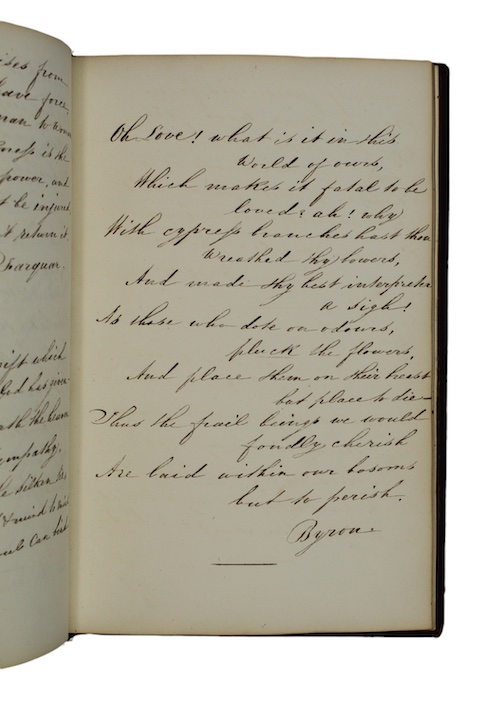 ises from
have force
man to woman
ness is the
power, and
t be injured
t return it
Farquar.
rift which
God has
ath the heaven
empathy,
e silken tie,
& mind to mind
Oh Love! what is it in this
World of ours,
Which makes it fatal to be
loved? ah! why
With cypress branches hast thou
Wreathed thy bowers,
And made thy best interpreter
a sigh!
As those who dote on odours,
pluck the flowers,
And place them on their breast
but place to die—
Thus the frail beings we would
fondly cherish
Are laid within our bosoms
but to perish.
Byron